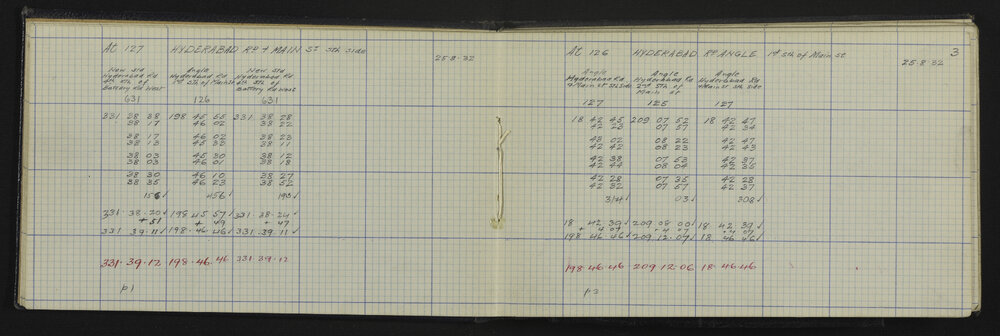 At 127 HYDERABAD RD & MAIN ST Sth Side
25·8·32
New Std Angle New Std
Hyderabad Rd Hyderabad Rd Hyderabad Rd
4th Sth of 1st Sth of Main St 4th Sth of
Battery Rd West Battery Rd West
631 126 631
331 38 38 198 45 55 331 38 28
38 17 46 02 38 22
38 17 46 02 38 23
38 13 45 38 38 11
38 03 45 30 38 12
38 03 46 01 38 18
38 30 46 10 38 27
38 35 46 23 38 52
156✓ 456✓ 193✓
331·38·20✓ 198 45 57✓ 331 38·24✓
+ 51 + 49 + 47
331 39·11✓ 198·46·46✓ 331·39·11✓
331·39·12 198·46·46 331·39·12
p1
At 126 HYDERABAD RD ANGLE 1st Sth of Main St
3
25·8·32
Angle Angle Angle
Hyderabad Rd Hyderabad Rd Hyderabad Rd
& Main St Sth Side 2nd Sth of & Main St Sth Side
Main St
127 125 127
18 42 45 209 07 52 18 42 47
42 23 07 57 42 34
43 02 08 22 42 47
42 42 08 23 42 43
42 38 07 53 42 37
42 44 08 04 42 35
42 28 07 35 42 28
42 32 07 57 42 37
314✓ 03✓ 308✓
18 42 39✓ 209 08 00✓ 18 42 39✓
+ 4 07 + 4 07 + 4 07
198 46 46✓ 209·12·07✓ 18 46 46✓
198·46·46 209·12·06 18·46·46
p3